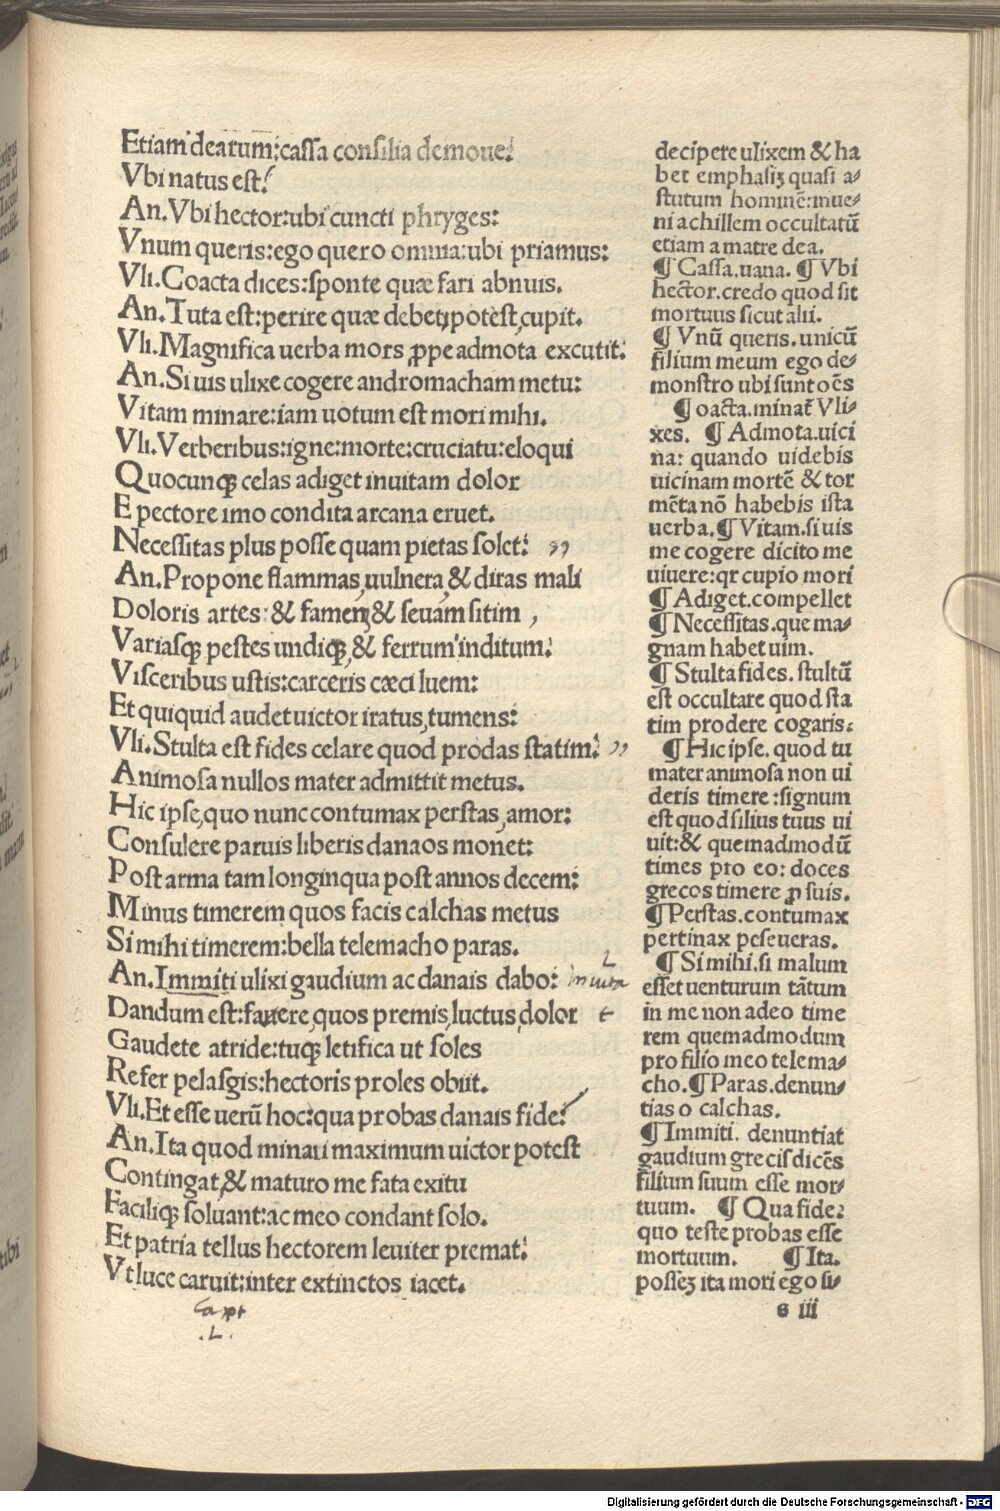 Etiam dearum:cassa consilia demoue.
Vbi natus est?
An.Vbi hector:ubi cuncti phryges:
Vnum queris:ego quero omnia:ubi priamus:
Vli.Coacta dices:sponte quæ fari abnuis.
An.Tuta est:perire quæ debet,potest,cupit.
Vli.Magnifica uerba mors ꝓpe admota excutit.
An.Si uis ulixe cogere andromacham metu:
Vitam minare:iam uotum est mori mihi.
Vli.Verberibus:igne:morte:cruciatu:eloqui
Quocunqꝫ celas adiget inuitam dolor
E pectore imo condita arcana eruet.
Necessitas plus posse quam pietas solet: ”
An.Propone flammas,uulnera,& diras mali
Doloris artes:& famem,& seuam sitim ,
Variasqꝫ pestes undiqꝫ,& ferrum inditum:
Visceribus ustis:carceris cæci luem:
Et quiquid audet uictor iratus,tumens:
Vli.Stulta est fides celare quod prodas statim. ”
Animosa nullos mater admittit metus.
Hic ipse,quo nunc contumax perstas,amor:
Consulere paruis liberis danaos monet:
Post arma tam longinqua post annos decem:
Minus timerem quos facis calchas metus
Si mihi timerem:bella telemacho paras.
An.Immiti ulixi gaudium ac danais dabo: inuita
Dandum est:fauere,quos premis,luctus,dolor t
Gaudete atride:tuqꝫ letifica ut soles
Refer pelasgis:hectoris proles obiit.
Vli.Et esse uerū hoc:qua probas danais fide?
An.Ita quod minari maximum uictor potest
Contingat,& maturo me fata exitu
Faciliqꝫ soluant:ac meo condant solo.
Et patria tellus hectorem leuiter premat:
Vt luce caruit:inter extinctos iacet.
.L.
decipere ulixem & ha
bet emphasiꝫ quasi a-
stutum hominē:inue-
ni achillem occultatū
etiam a matre dea.
¶ Cassa.uana. ¶ Vbi
hector.credo quod sit
mortuus sicut alii.
¶ Vnū queris.unicū
filium meum ego de-
monstro ubi sunt oēs
¶ oacta.minat Vli-
xes. ¶ Admota.uici
na: quando uidebis
uicinam mortē & tor
mēta nō habebis ista
uerba.¶ Vitam.si uis
me cogere dicito me
uiuere:qr cupio mori
¶ Adiget.compellet
¶ Necessitas.que ma-
gnam habet uim.
¶ Stulta fides. stultū
est occultare quod sta
tim prodere cogaris:
¶ Hic ipse. quod tu
mater animosa non ui
deris timere :signum
est quod filius tuus ui
uit:& quemadmodū
times pro eo: doces
grecos timere ꝓ suis.
¶ Perstas.contumax
pertinax peseueras.
¶ Si mihi.si malum
esset uenturum tātum
in me non adeo time
rem quemadmodum
pro filio meo telema-
cho.¶ Paras.denun-
tias o calchas.
¶ Immiti. denuntiat
gaudium grecis dicēs
filium suum esse mor-
tuum. ¶ Qua fide?
quo teste probas esse
mortuum. ¶ Ita.
posseꝫ ita mori ego si-
s iii
Digitalisierung gefördert durch die Deutsche Forschungsgemeinschaft - DFG